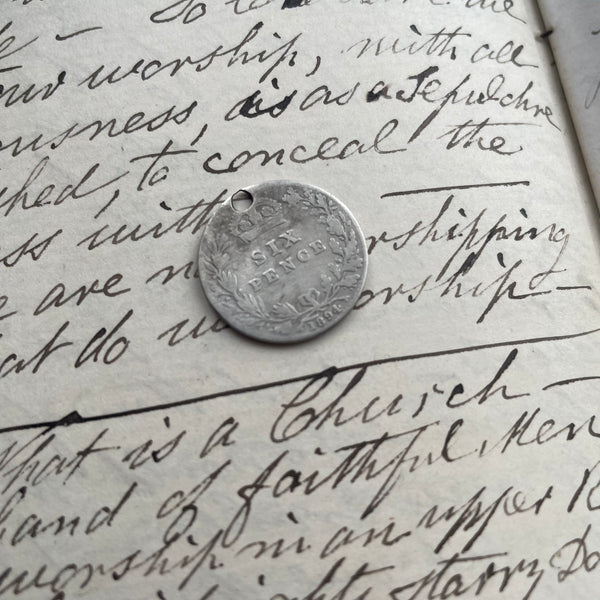 our worship, with all
ousness, is as a Sepulchre
shed, to conceal the
ess with
SIX
PENCE
1894
e are n orshipping
at do w orship —
What is a Church —
band of faithful Men
worship in an upper R
starry Do